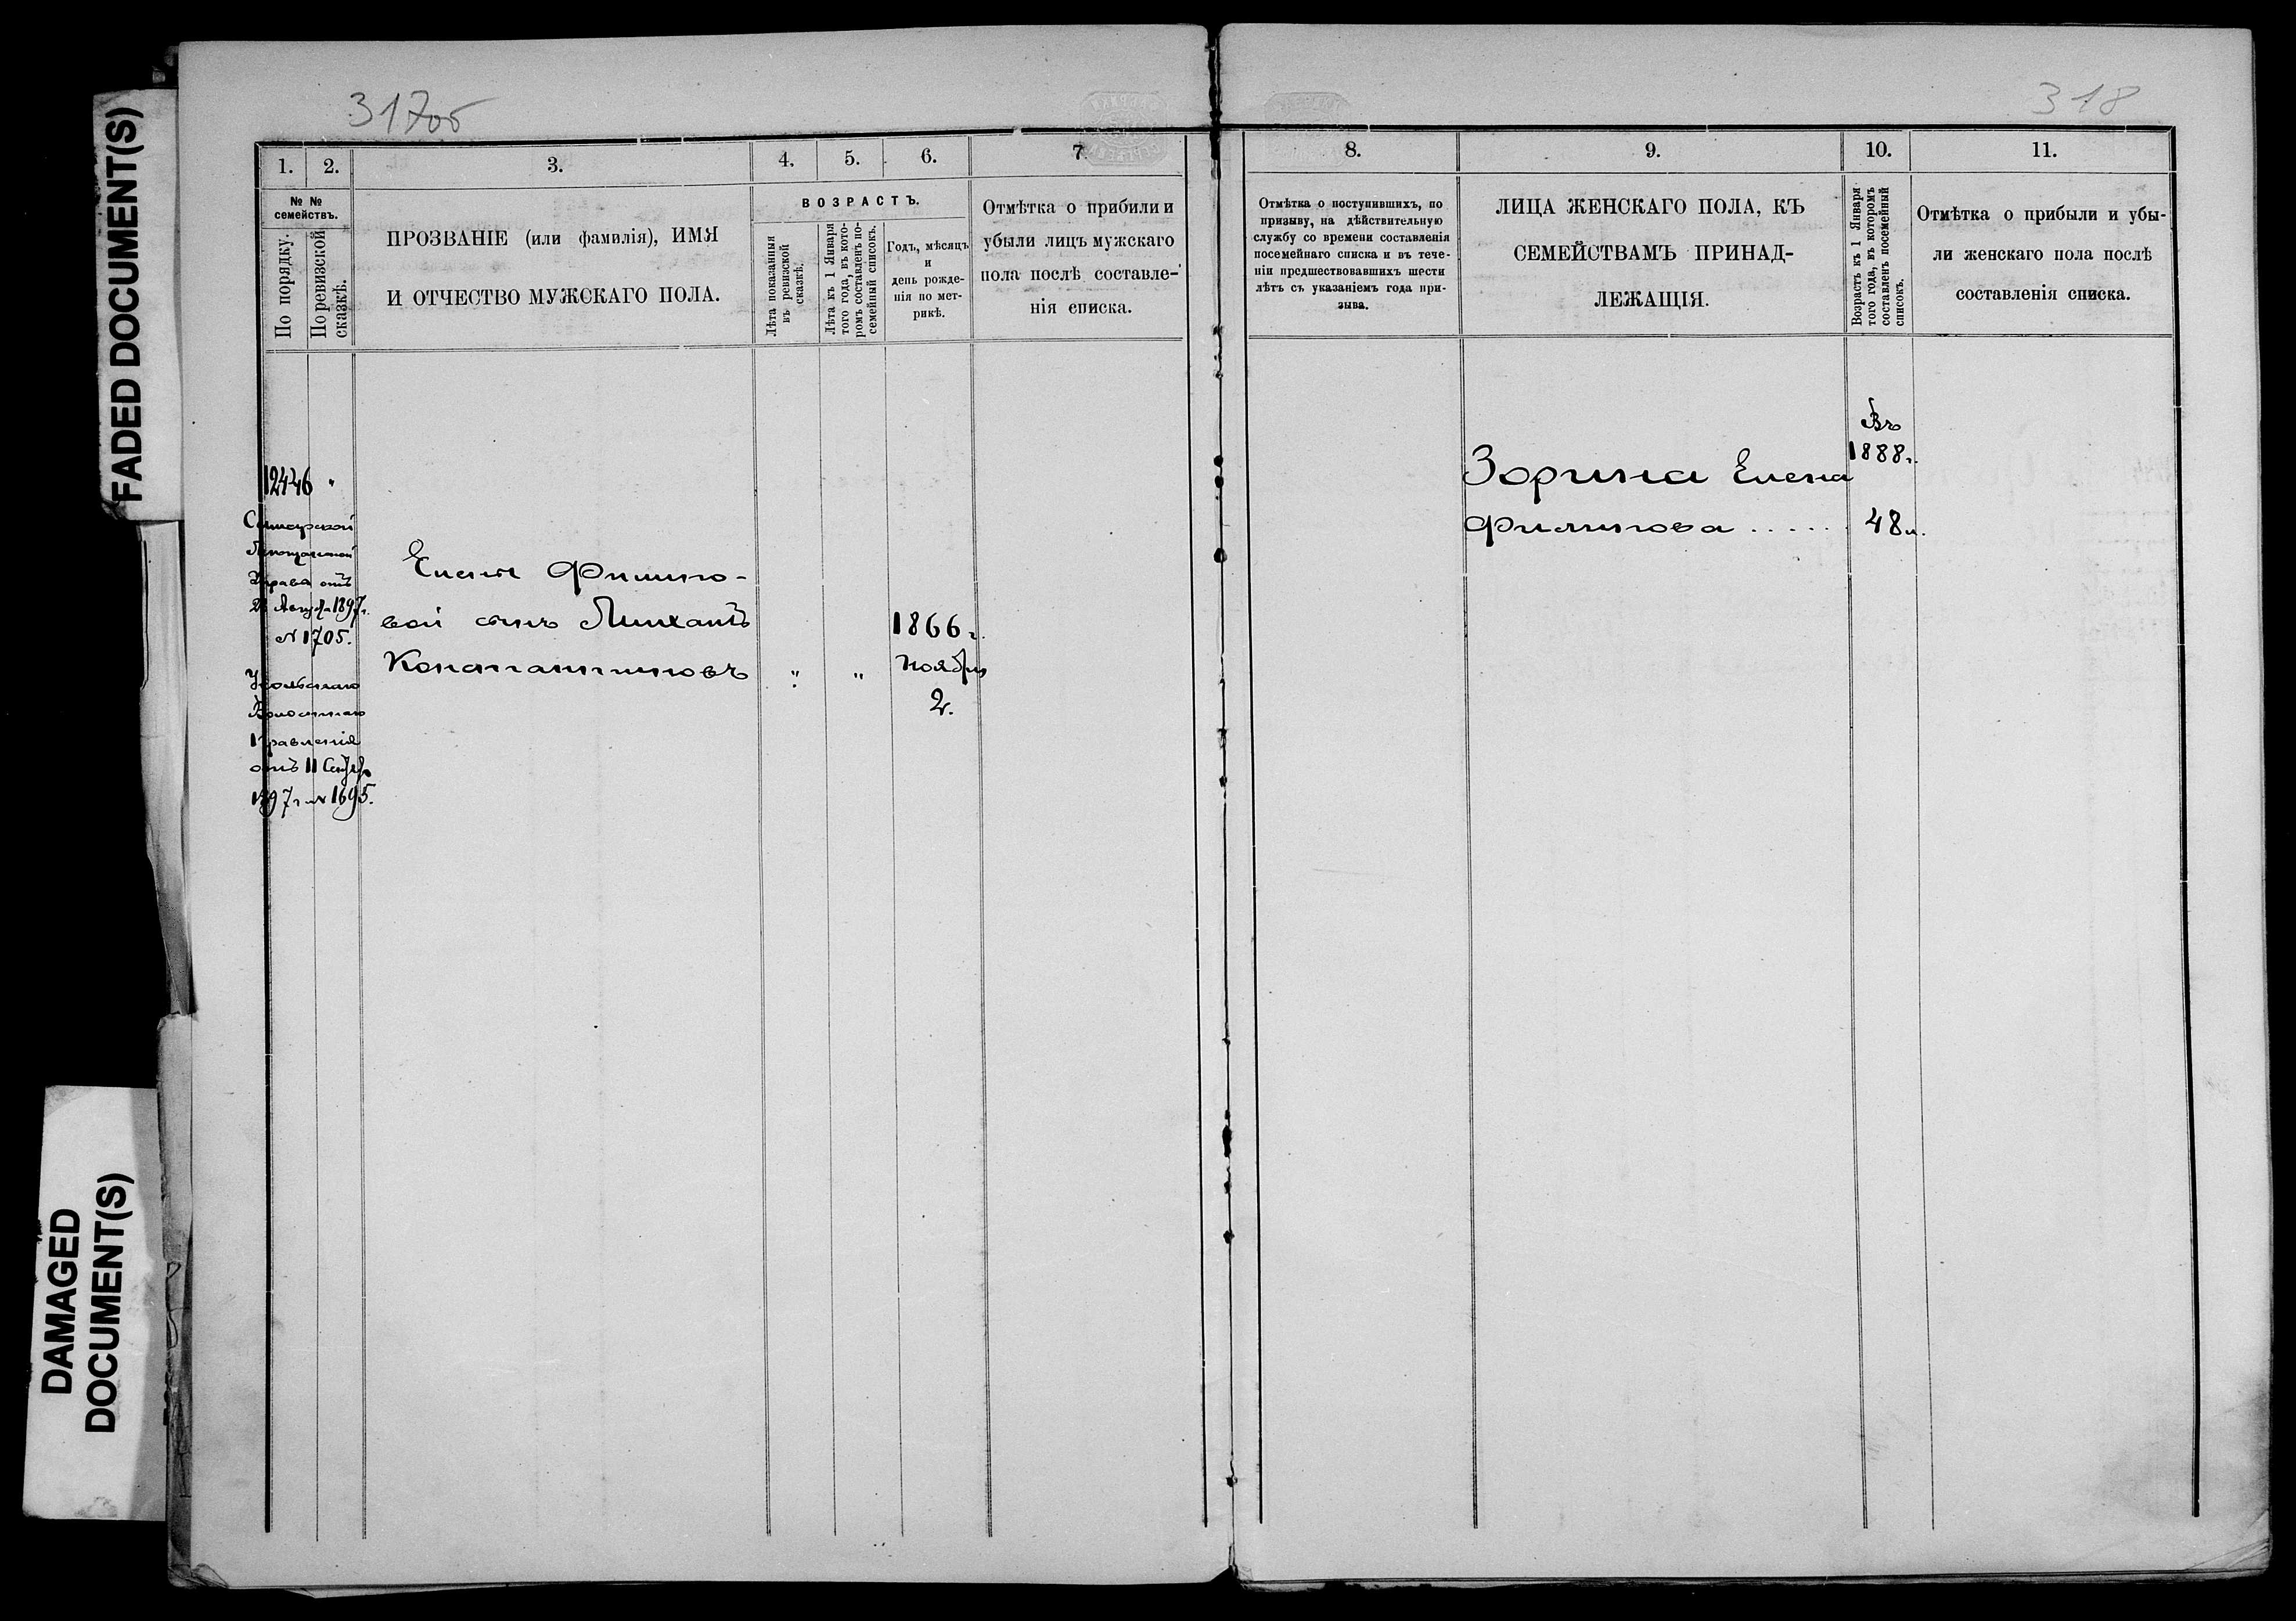 FADED DOCUMENT(S)
DAMAGED
DOCUMENT(S)
317об
1. 2. 3. 4. 5. 6. 7.
№ №
семействъ.
По порядку.
По ревизской
сказкѣ.
ПРОЗВАНІЕ (или фамилія), ИМЯ
И ОТЧЕСТВО МУЖСКАГО ПОЛА.
ВОЗРАСТЪ.
Лѣта показанія
въ ревизской
сказкѣ.
Лѣта къ 1 Января
того года, въ кото-
ромъ составленъ по-
семейный списокъ.
Годъ, мѣсяцъ
и
день рожде-
нія по мет-
рикѣ.
Отмѣтка о прибыли и
убыли лицъ мужскаго
пола послѣ составле-
нія списка.
12446 "
Самарской
Управа отъ
1897г.
№ 1705.
Волостнаго
Правленія
отъ 11 Сентяб
1897г. № 1695.
Елены Филипо-
вой сынъ Михаилъ
Константиновъ " "
1866г.
Ноября
2.
318
8. 9. 10. 11.
Отмѣтка о поступившихъ, по
призыву, на дѣйствительную
службу со времени составленія
посемейнаго списка и въ тече-
ніи предшествовавшихъ шести
лѣтъ съ указаніемъ года при-
зыва.
ЛИЦА ЖЕНСКАГО ПОЛА, КЪ
СЕМЕЙСТВАМЪ ПРИНАД-
ЛЕЖАЩІЯ.
Возрастъ къ 1 Января
того года, въ которомъ
составленъ посемейный
списокъ.
Отмѣтка о прибыли и убы-
ли женскаго пола послѣ
составленія списка.
Въ
1888г.
Зорина Елена
Филипова ...... 48л.